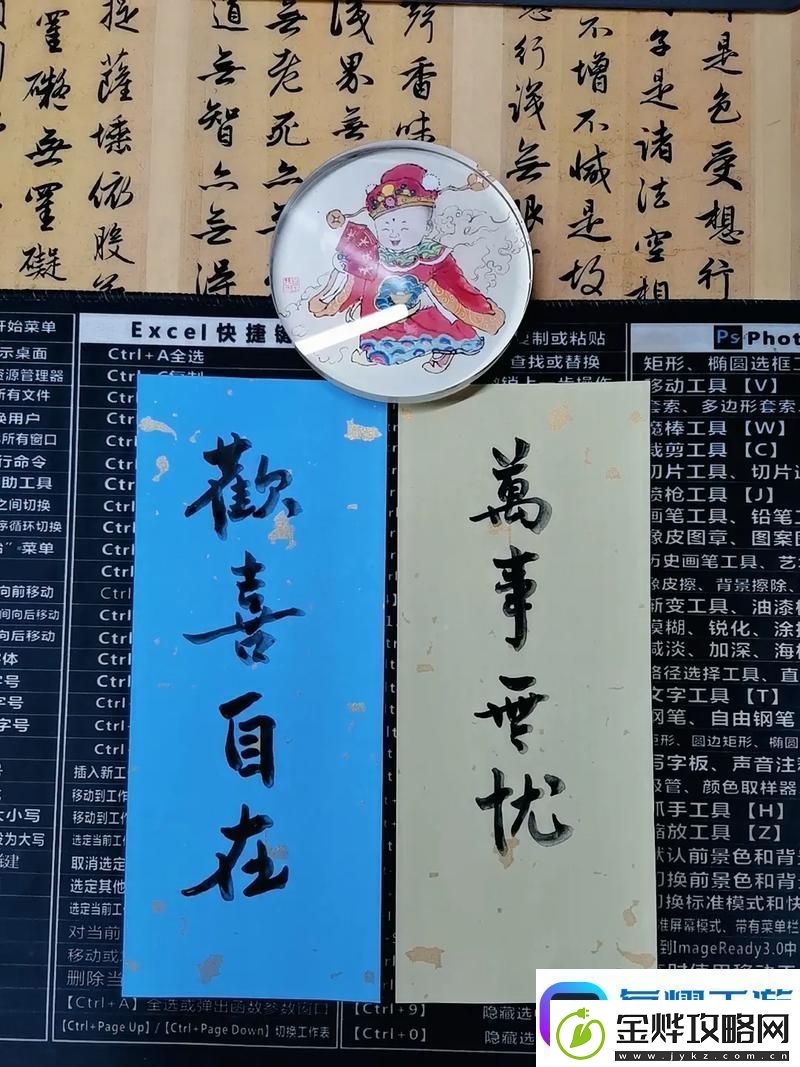 罣礙無罣礙
提薩埵依般
道無智亦無得
無老死亦無
淺界無
聲香味
行識無眼
不增不減是故
子是諸法空相
是色受想行
开始菜单
示桌面
资源管理器
所有文件
换用户
所有窗口
行命令
助工具
之间切换
序循环切换
”菜单
向前移动
间向后移动
向后移动
字体
字号
字号
字号
大小写
设为大写
Excel快捷键
Ctrl+A全选
复制或粘贴
查找或替换
插入新工
移动到工作
移动到工作
选定当前工
取消选定
选定其他
选定当前工作
对当前
移动或
删除当
【Ctrl+A】全选或弹出函数参数窗口
【Ctrl+Page Up】/【Ctrl+Page Down】切换工作表
【Ctrl+9】
【Ctrl+0】
隐藏选
隐藏选
Ps Phot
矩形、椭圆选框工
移动工具【V】
套索、多边形套索、
魔棒工具【W】
裁剪工具【C】
切片工具、切片选
喷枪工具【J】
画笔工具、铅笔工
橡皮图章、图案图
历史画笔工具、艺
橡皮擦、背景擦除、
渐变工具、油漆桶
模糊、锐化、涂抹
减淡、加深、海棉
路径选择工具、直
文字工具【T】
钢笔、自由钢笔
矩形、圆边矩形、椭圆
写字板、声音注释
吸管、颜色取样器
抓手工具【H】
缩放工具【Z】
默认前景色和背景
切换前景色和背景
切换标准模式和快
标准屏幕模式、带有菜单栏
到ImageReady3.0中
歡喜自在
萬事無忧
金烨攻略网
www.jykz.com.cn